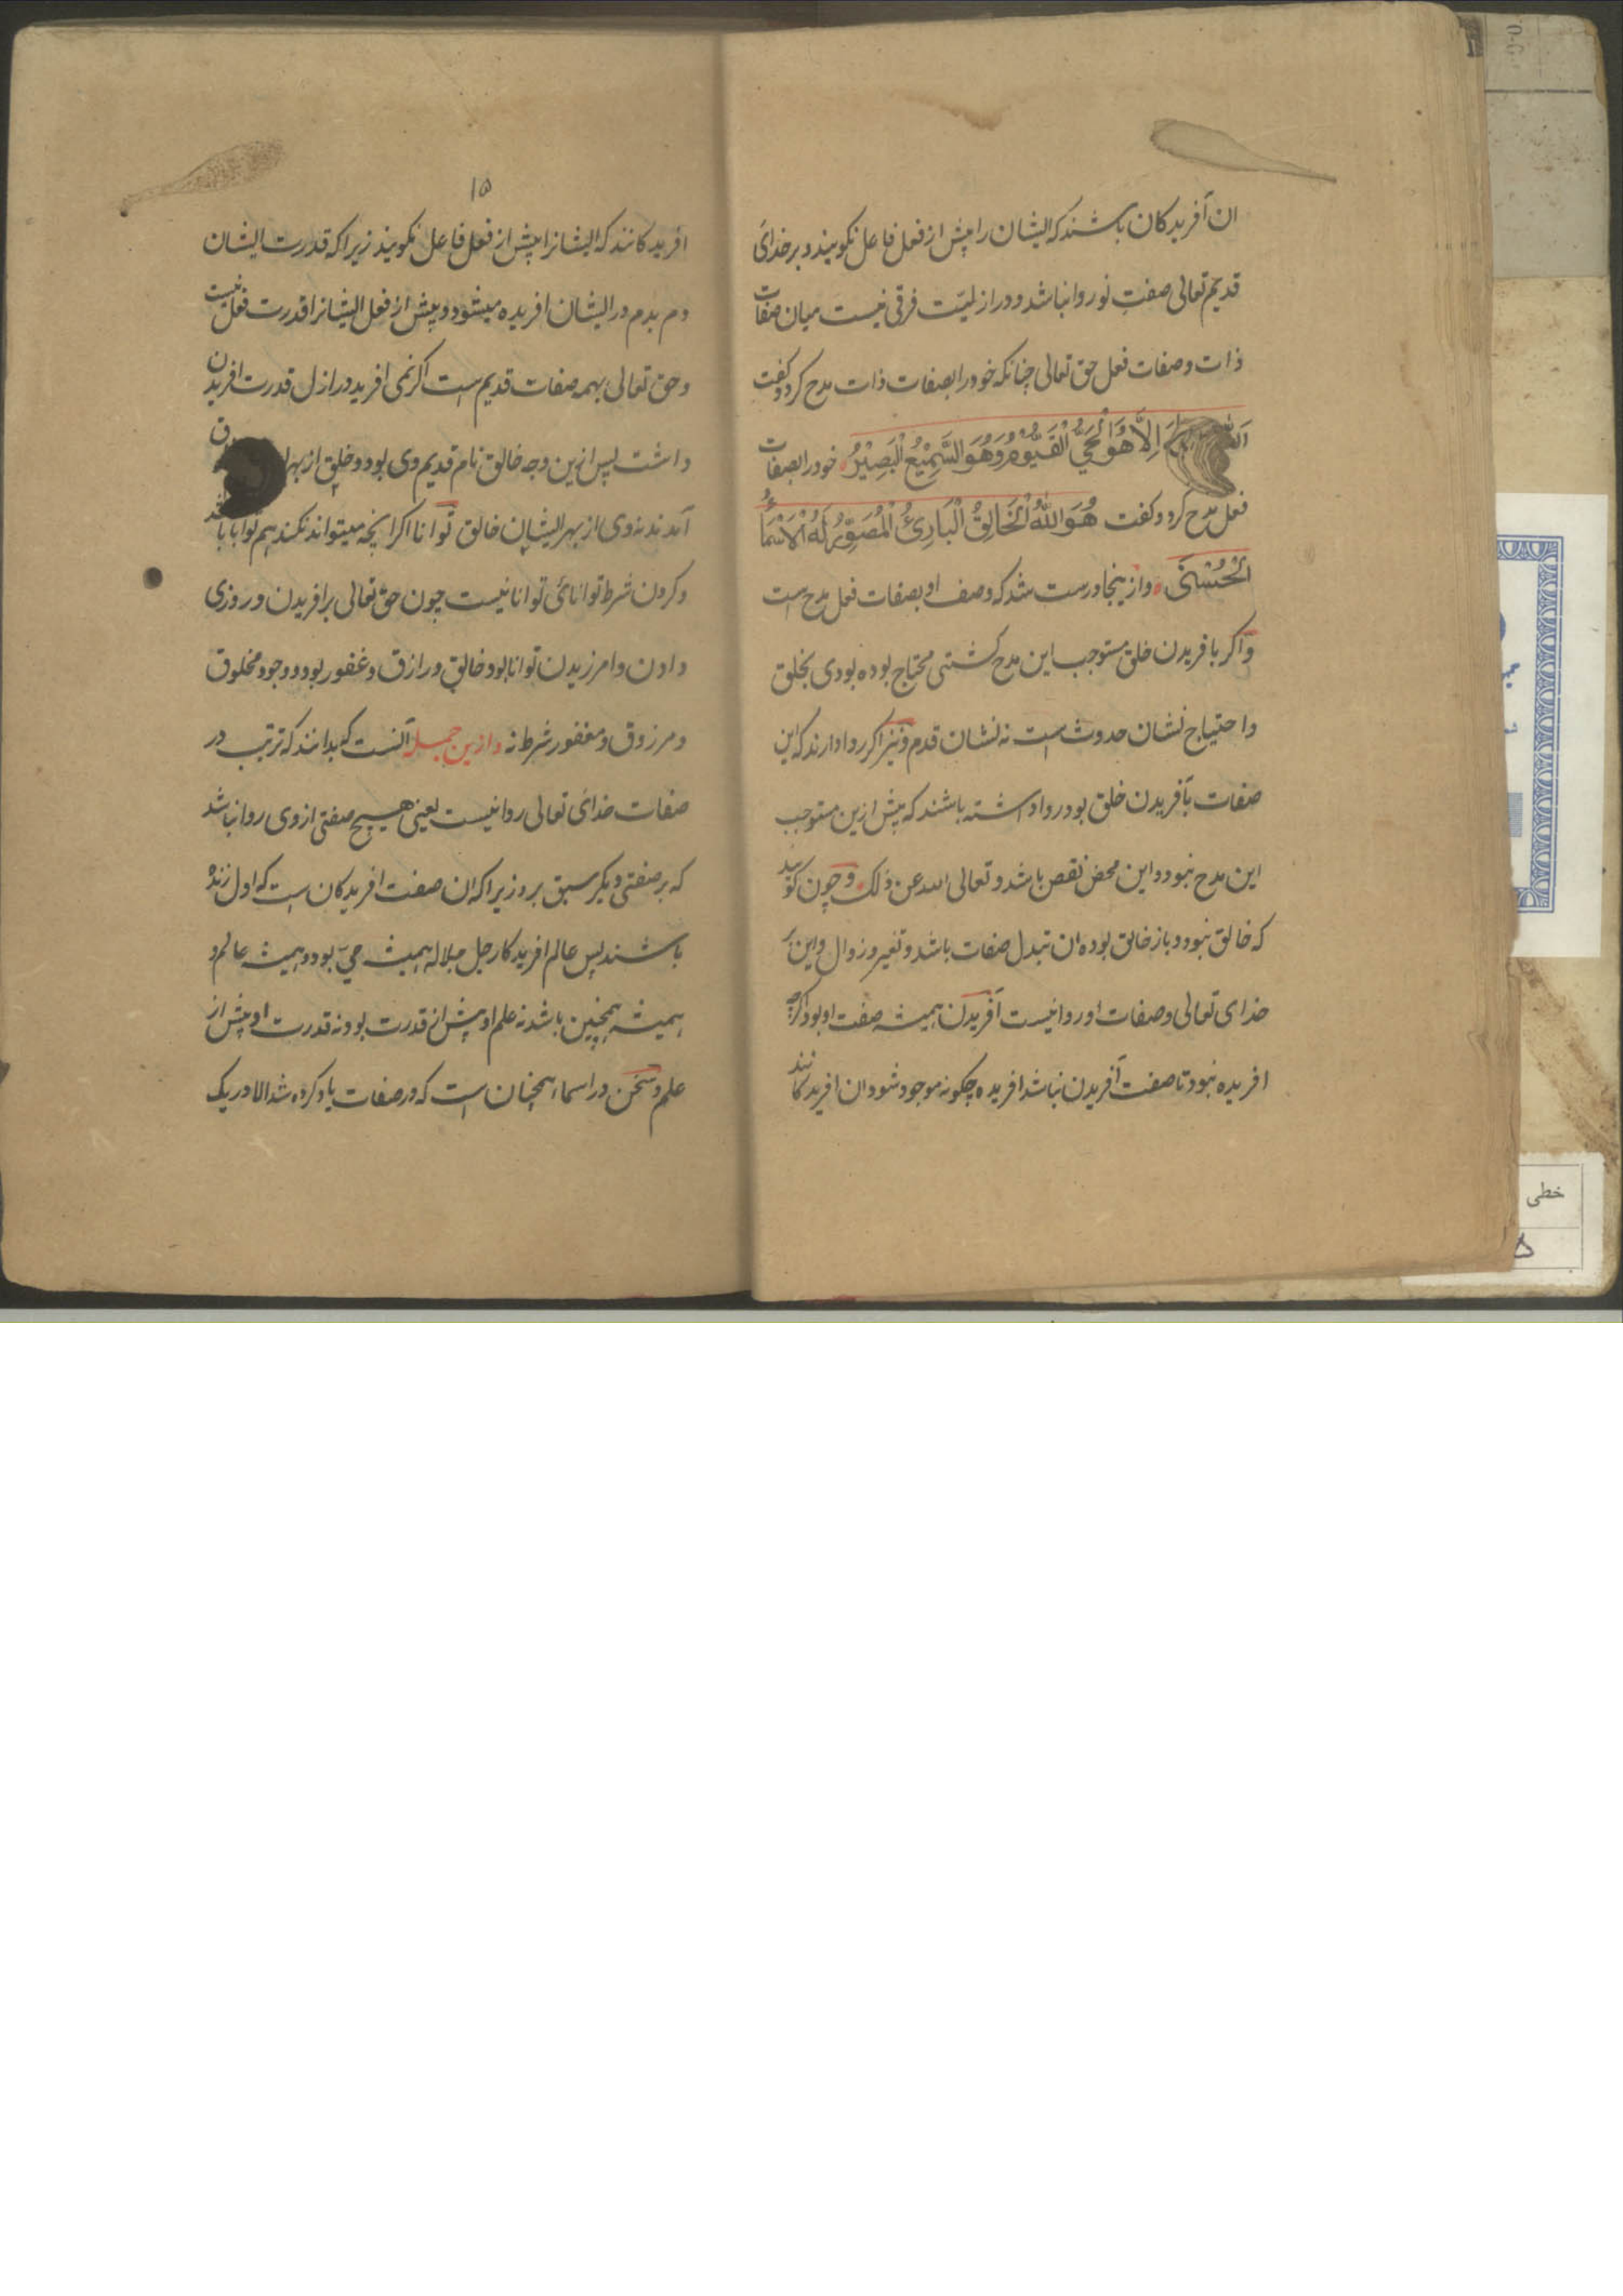 ان آفریدکان باشند که ایشان را پیش از فعل فاعل نکویند و بر خدائ
قدیم تعالی صفت نو روا نباشد و در ازلیّت فرقی نیست میان صفات
ذات و صفات فعل حق تعالی چنانکه خود را بصفات ذات مدح کرد و کفت
اِلاَّ هُوَ الْحَيُّ الْقَيُّومُ وَهُوَ السَّمِيْعُ الْبَصِيْرُ خود را بصفات
فعل مدح کرد و کفت هُوَ اللّٰهُ الْخَالِقُ الْبَارِئُ الْمُصَوِّرُ لَهُ الْاَسْمَاءُ
الْحُسْنَى و ازینجا درست شد که وصف او بصفات فعل مدح است
و اکر بافریدن خلق مستوجب این مدح کشتی محتاج بوده بودی بخلق
و احتیاج نشان حدوث است نه نشان قدم و نیز اکر روا دارند که این
صفات بآفریدن خلق بود روا داشته باشند که پیش ازین مستوجب
این مدح نبود و این محض نقص باشد و تعالی الله عن ذلک و چون کویند
که خالق نبود و باز خالق بوده ان تبدل صفات باشد و تغیر و زوال و این بر
خدای تعالی و صفات او روا نیست آفریدن همیشه صفت او بود اکرچه
افریده نبود تا صفت آفریدن نباشد افریده چکونه موجود شود ان افریدکانند
۱۵
افریدکانند که ایشانرا پیش از فعل فاعل نکویند زیرا که قدرت ایشان
دم بدم در ایشان افریده میشود و پیش از فعل ایشانرا قدرت فعل نیست
و حق تعالی بهمه صفات قدیم است اکر نمی افرید در ازل قدرت افریدن
داشت پس ازین وجه خالق نام قدیم وی بود و خلق از بهر
آمدند نه وی از بهر ایشان خالق توانا اکر انچه میتواند نکند هم توانا باشد
و کردن شرط توانائی توانا نیست چون حق تعالی بر افریدن و روزی
دادن و امرزیدن توانا بود خالق و رازق و غفور بود و وجود مخلوق
و مرزوق و مغفور شرط نه و ازین جمله آنست که بدانند که ترتیب در
صفات خدائ تعالی روا نیست یعنی هیچ صفتی از وی روا نباشد
که بر صفتی دیکر سبق برد زیرا که ان صفت افریدکان است که اول زنده
باشند پس عالم افریدکار جل جلاله همیشه حیّ بود و همیشه عالم و
همیشه همچنین باشد نه علم او پیش از قدرت بود نه قدرت او پیش از
علم و سخن در اسماء همچنان است که در صفات یاد کرده شد الا در یک
خطی